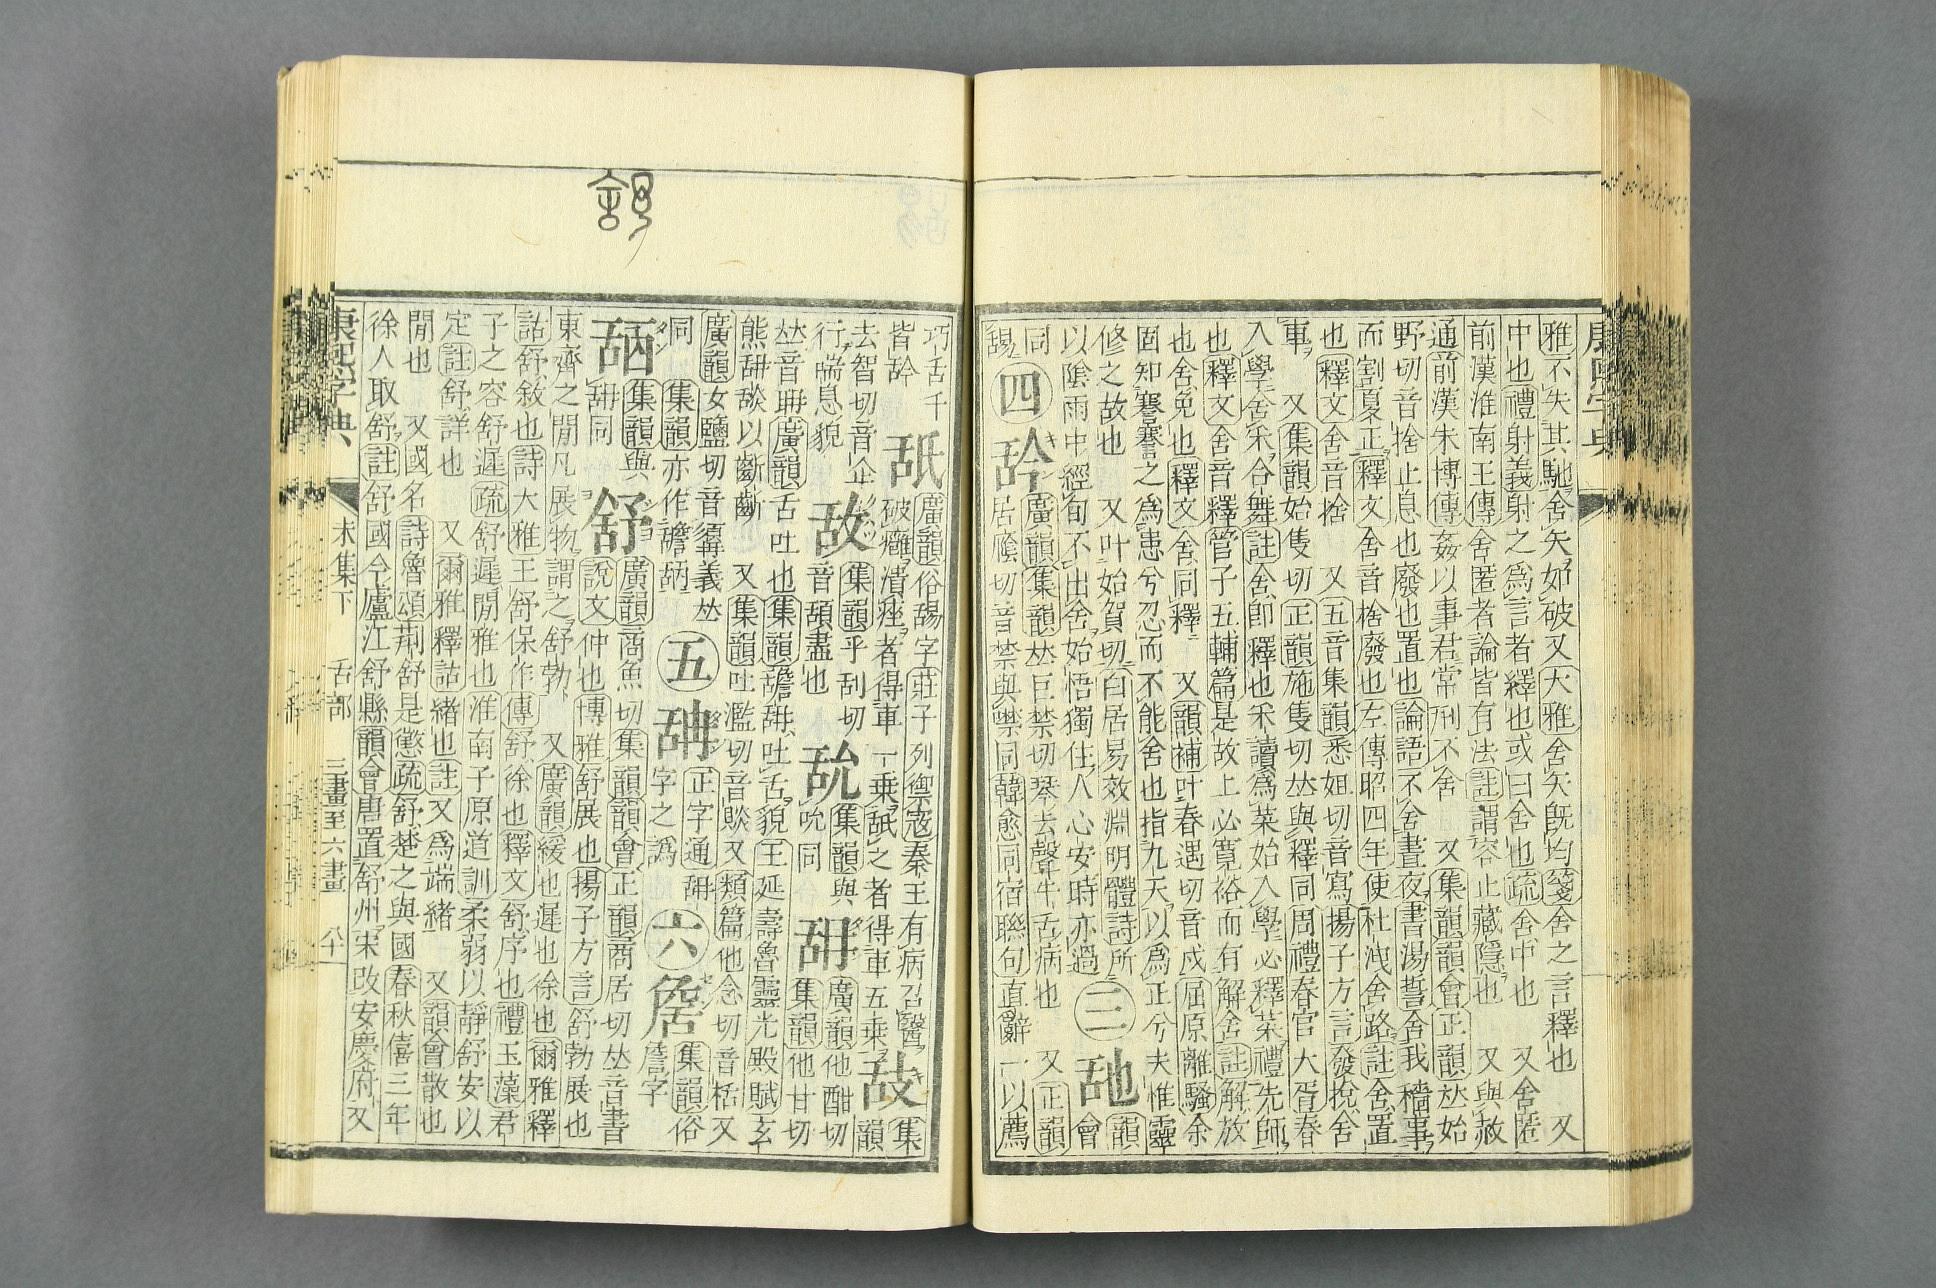 雅不失其馳舍矢如破又大雅舍矢旣均箋舍之言釋也 又
中也禮射義射之爲言者繹也或曰舍也疏舍中也 又舍匿
前漢淮南王傳舍匿者論皆有法註謂容止藏隱也 又與赦
通前漢朱博傳姦以事君常刑不舍 又集韻韻會正韻𠀤始
野切音捨止息也廢也置也論語不舍晝夜書湯誓舍我穡事
而割夏正釋文舍音捨廢也左傳昭四年使杜洩舍路註舍置
也釋文舍音捨 又五音集韻悉姐切音寫揚子方言發捝舍
車 又集韻始隻切正韻施隻切𠀤與釋同周禮春官大胥春
入學舍采合舞註舍卽釋也采讀爲菜始入學必釋菜禮先師
也釋文舍音釋管子五輔篇是故上必寬裕而有解舍註解放
也舍免也釋文舍同釋 又韻補叶春遇切音戍屈原離騷余
固知謇謇之爲患兮忍而不能舍也指九天以爲正兮夫惟靈
修之故也 又叶始賀切白居易效淵明體詩所
以陰雨中經旬不出舍始悟獨住人心安時亦過
三 韻會
同舓
四 廣韻集韻𠀤巨禁切琴去聲牛舌病也 又正韻
居廕切音禁與噤同韓愈同宿聯句直辭一以薦
巧舌千
皆
舐 廣韻俗舓字莊子列禦寇秦王有病召醫
破癰潰痤者得車一乘舐之者得車五乘
集韻
去智切音企
行喘息貌
敌 集韻乎刮切
音頢盡也
集韻與
吮同
舑 廣韻他酣切
集韻他甘切
𠀤音聃廣韻舌吐也集韻舑吐舌貌王延壽魯靈光殿賦玄
熊舑舕以齗齗 又集韻吐濫切音賧又類篇他念切音栝又
廣韻女鹽切音義𠀤
同 集韻亦作譫
五 正字通舑
字之譌
六 集韻俗
詹字
集韻與
舑同
舒 廣韻商魚切集韻韻會正韻商居切𠀤音書
說文伸也博雅舒展也揚子方言舒勃展也
東齊之閒凡展物謂之舒勃 又廣韻緩也遲也徐也爾雅釋
詁舒敘也詩大雅王舒保作傳舒徐也釋文舒序也禮玉藻君
子之容舒遲疏舒遲閒雅也淮南子原道訓柔弱以靜舒安以
定註舒詳也 又爾雅釋詁緒也註又爲端緒 又韻會散也
閒也 又國名詩魯頌荆舒是懲疏舒楚之與國春秋僖三年
徐人取舒註舒國今廬江舒縣韻會唐置舒州宋改安慶府又
康熙字典 未集下 舌部 三畫至六畫 八十